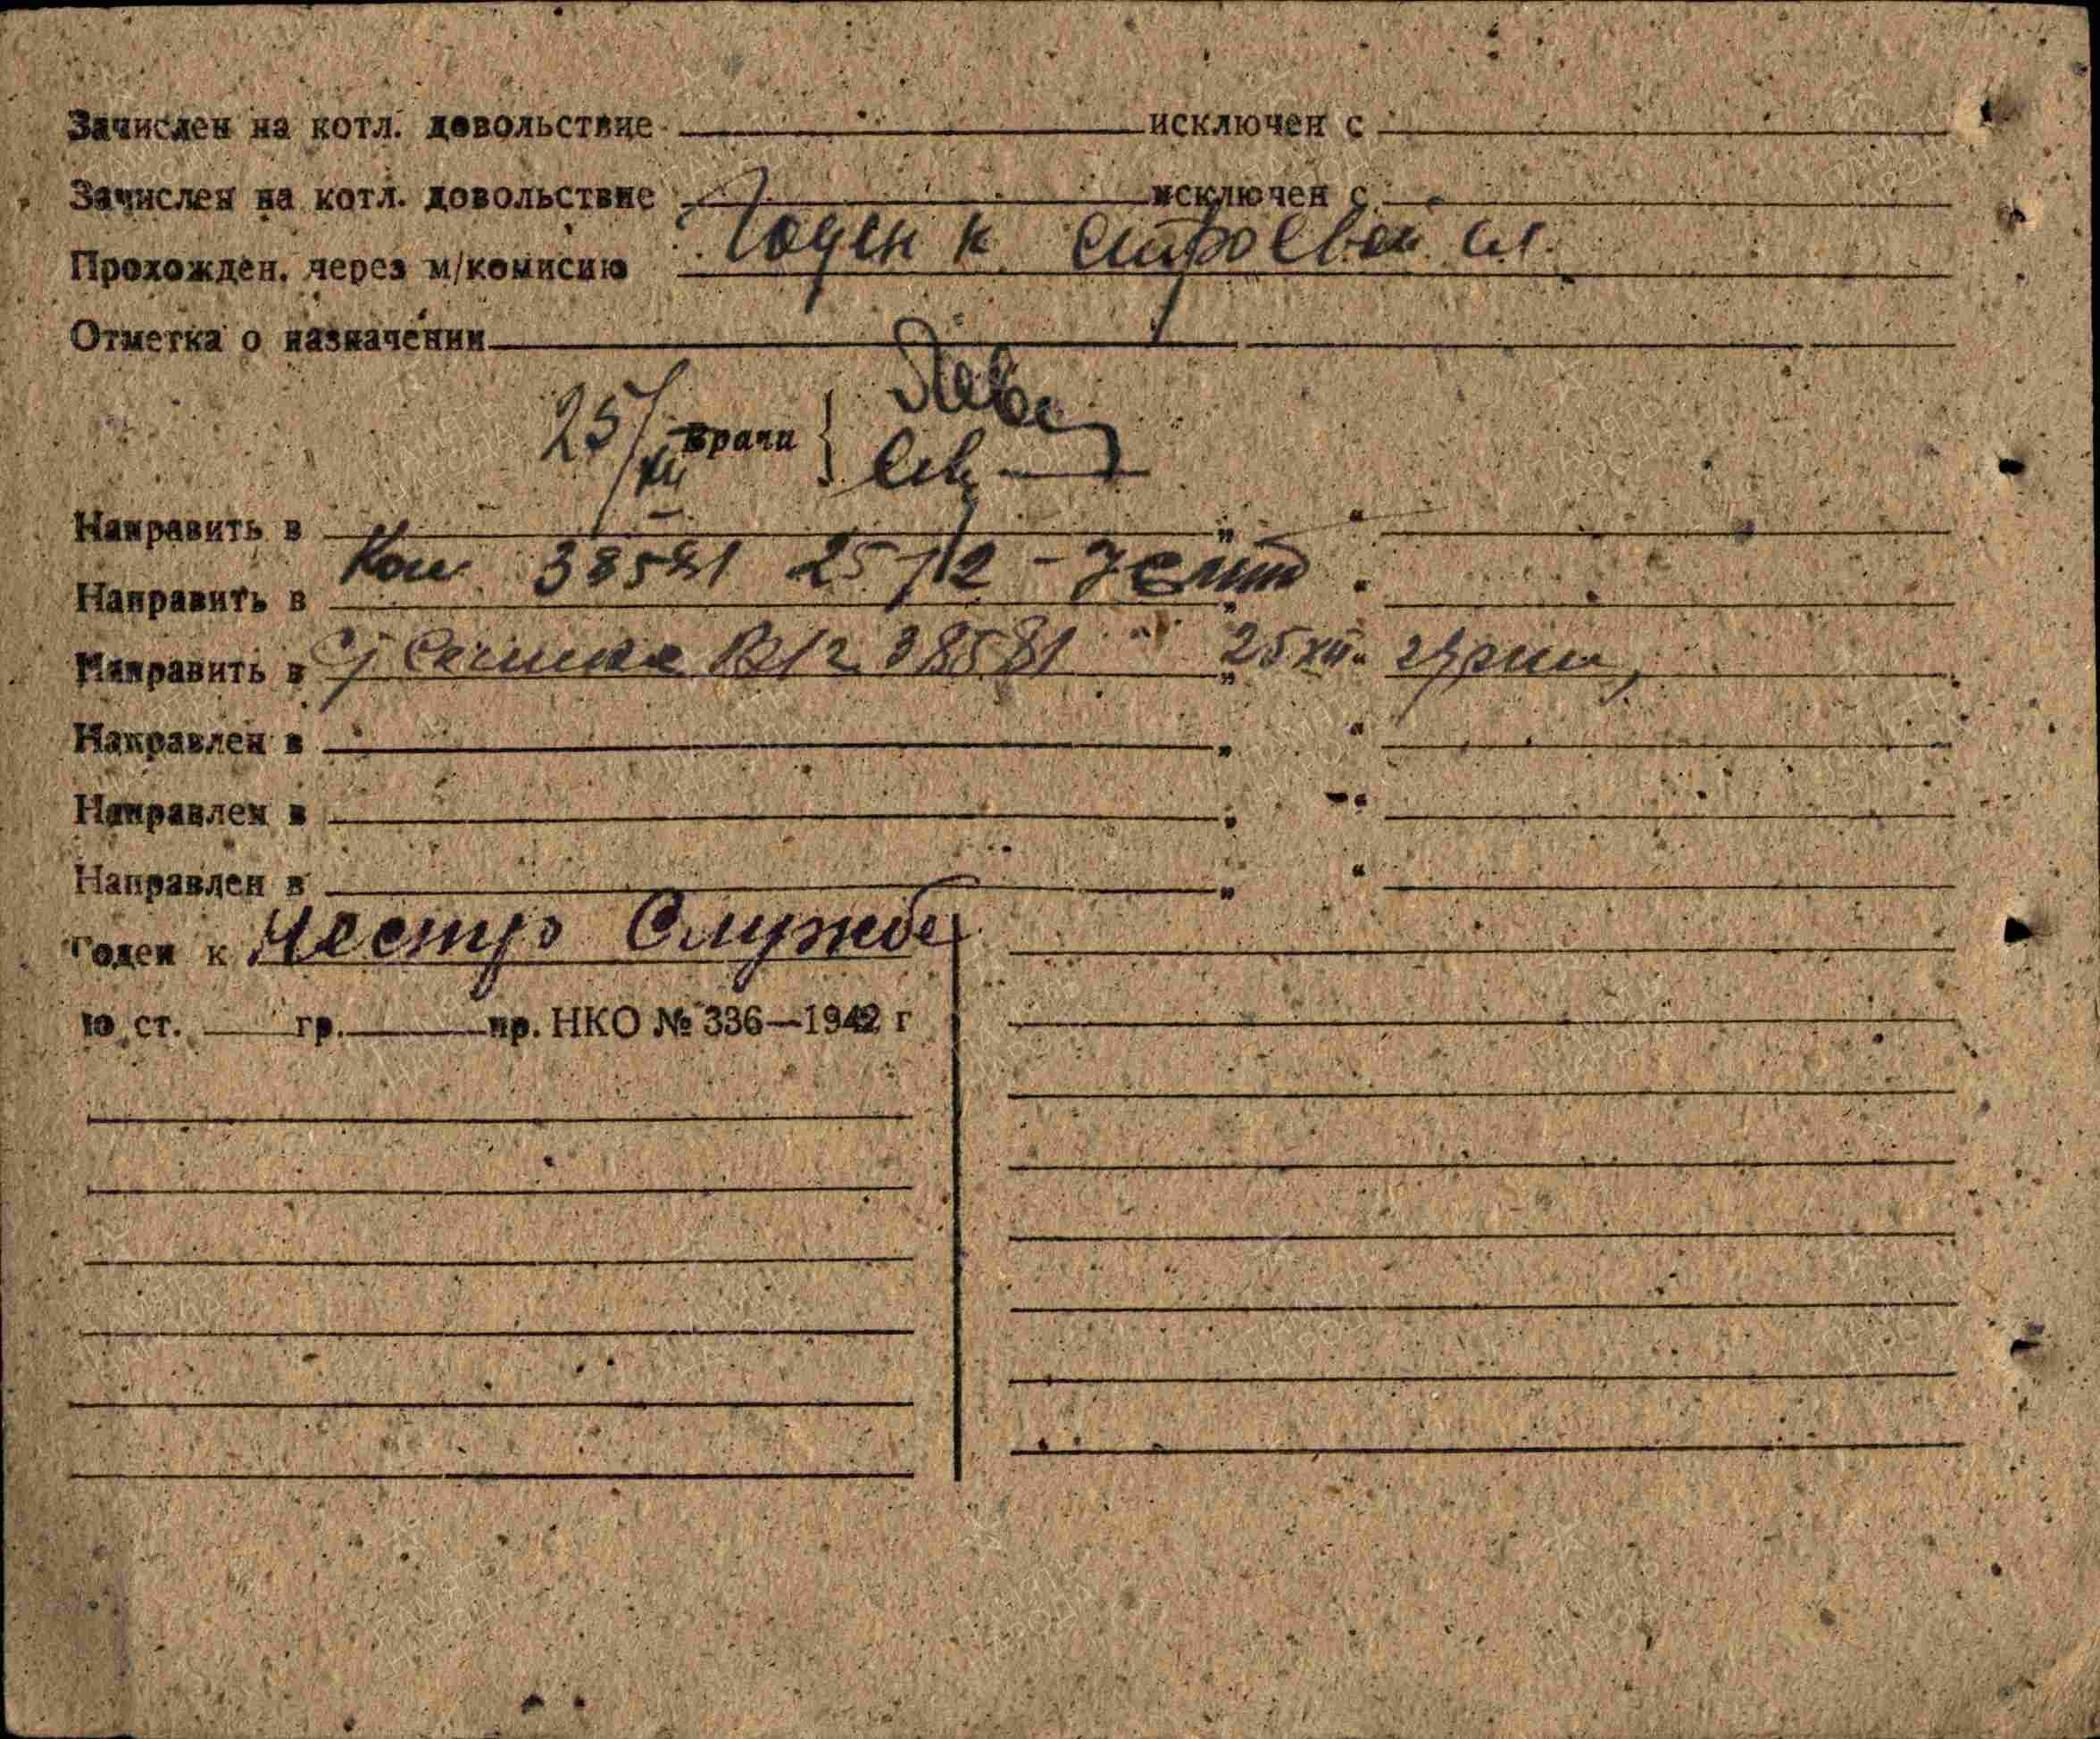 Зачислен на котл. довольствие исключен с
Зачислен на котл. довольствие исключен с
Прохожден. через м/комисию Годен к строевой сл.
Отметка о назначении
25/XII врачи
Направить в „ “
Направить в 38581 25/12 - „ “
Направить в В/ч 38581 „25 XII“
Направлен в „ “
Направлен в „ “
Направлен в „ “
Годен к нестро Службе
по ст. гр. пр. НКО № 336—1942 г